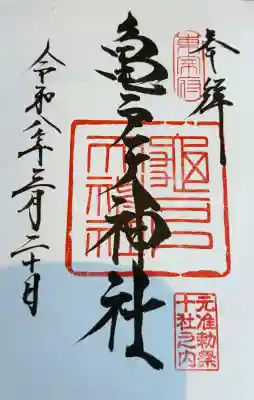 奉拝
東宰府
亀戸天神社
龜戸
天神社
元准勅祭
十社之内
令和八年三月二十日